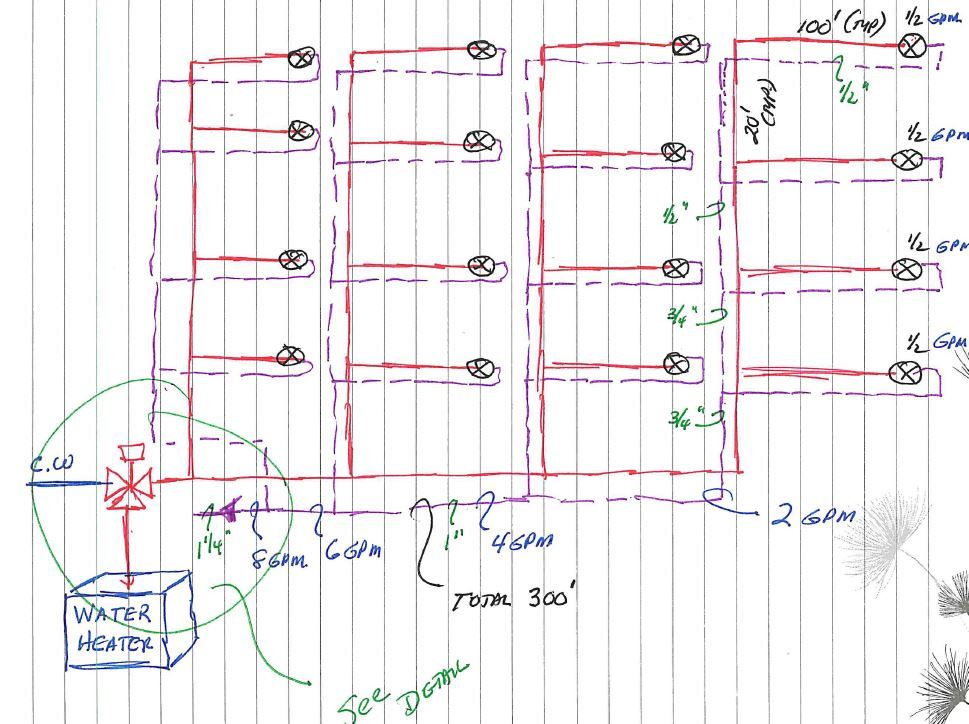 100' (TYP)
1/2 GPM
1/2"
20' (TYP)
1/2 GPM
1/2"
1/2 GPM
3/4"
1/2 GPM
3/4"
C.W
1 1/4"
8 GPM
6 GPM
1"
4 GPM
2 GPM
TOTAL 300'
WATER
HEATER
See DETAIL